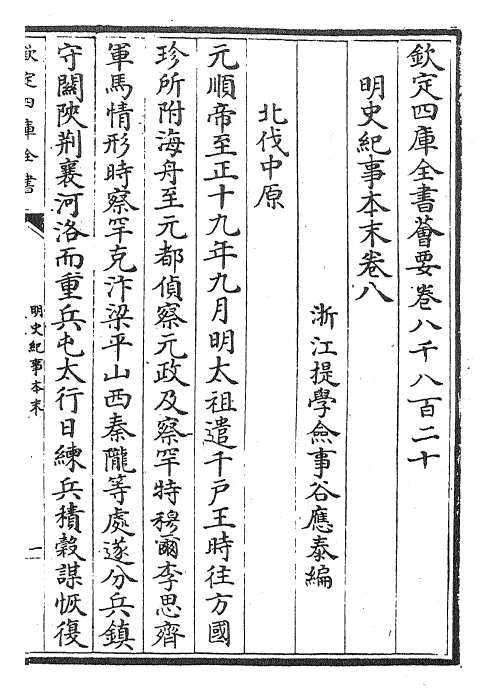 欽定四庫全書薈要卷八千八百二十
明史紀事本末卷八
浙江提學僉事谷應泰編
北伐中原
元順帝至正十九年九月明太祖遣千戶王時往方國
珍所附海舟至元都偵察元政及察罕特穆爾李思齊
軍馬情形時察罕克汴梁平山西秦隴等處遂分兵鎮
守關陝荆襄河洛而重兵屯太行日練兵積穀謀恢復
欽定四庫全書
明史紀事本末
一